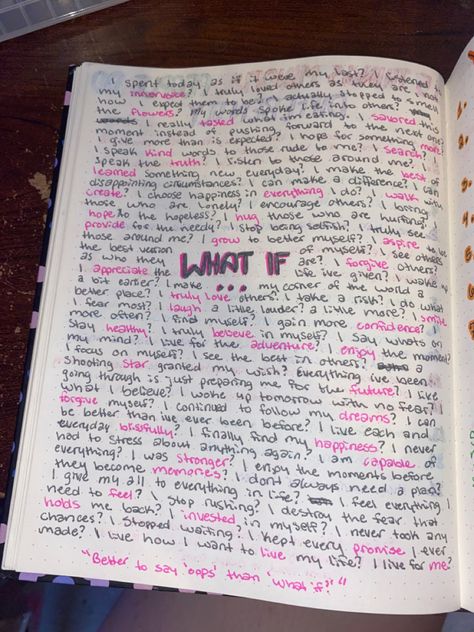 I spent today as if it were my last? I listened to
my innervoice? I truly loved others as they are not
how I expect them to be? I actually stopped to smell
the flowers? My words spoke life into others?
I really tasted what i'm eating. I savored this
moment instead of pushing forward to the next one?
I give more than is expected? I hope for something more?
I speak kind words to those rude to me? I search?
Speak the truth? I listen to those around me? I
learned something new everyday? I make the best of
disappointing circumstances? I can make a difference? I can
create? I choose happiness in everything I do? I walk with
those who are lonely? I encourage others? I bring
hope to the hopeless? I hug those who are hurting?
provide for the needy? I stop being selfish? I truly see
those around me? I grow to better myself? I aspire to be
the best version of myself? I see others
as who they are? I forgive others?
I appreciate the life i've given? I wake up
a bit earlier? I make my corner of the world a
better place? I truly love others? I take a risk? I do what
I fear most? I laugh a little louder? a little more? I smile
more often? I find myself? I gain more confidence?
Stay healthy? I truly believe in myself? I say whats on
my mind? I live for the adventure? I enjoy the moment?
I focus on myself? I see the best in others? a
shooting star granted my wish? Everything i've been
going through is just preparing me for the future? I live
what I believe? I woke up tomorrow with no fear? I
forgive myself? I continued to follow my dreams? I can
be better than i've ever been before? I live each and
everyday blissfully? I finally find my happiness? I never
had to stress about anything again? I am capable of
everything? I was stronger? I enjoy the moments before
they become memories? I dont always need a plan?
I give my all to everything in life? I feel everything I
need to feel? I stop rushing? I destroy the fear that
holds me back? I invested in myself? I never took any
chances? I stopped waiting? I kept every promise I ever
made? I live how I want to live my life? I live for me?
WHAT IF
...
"Better to say 'oops' than 'what if?'"